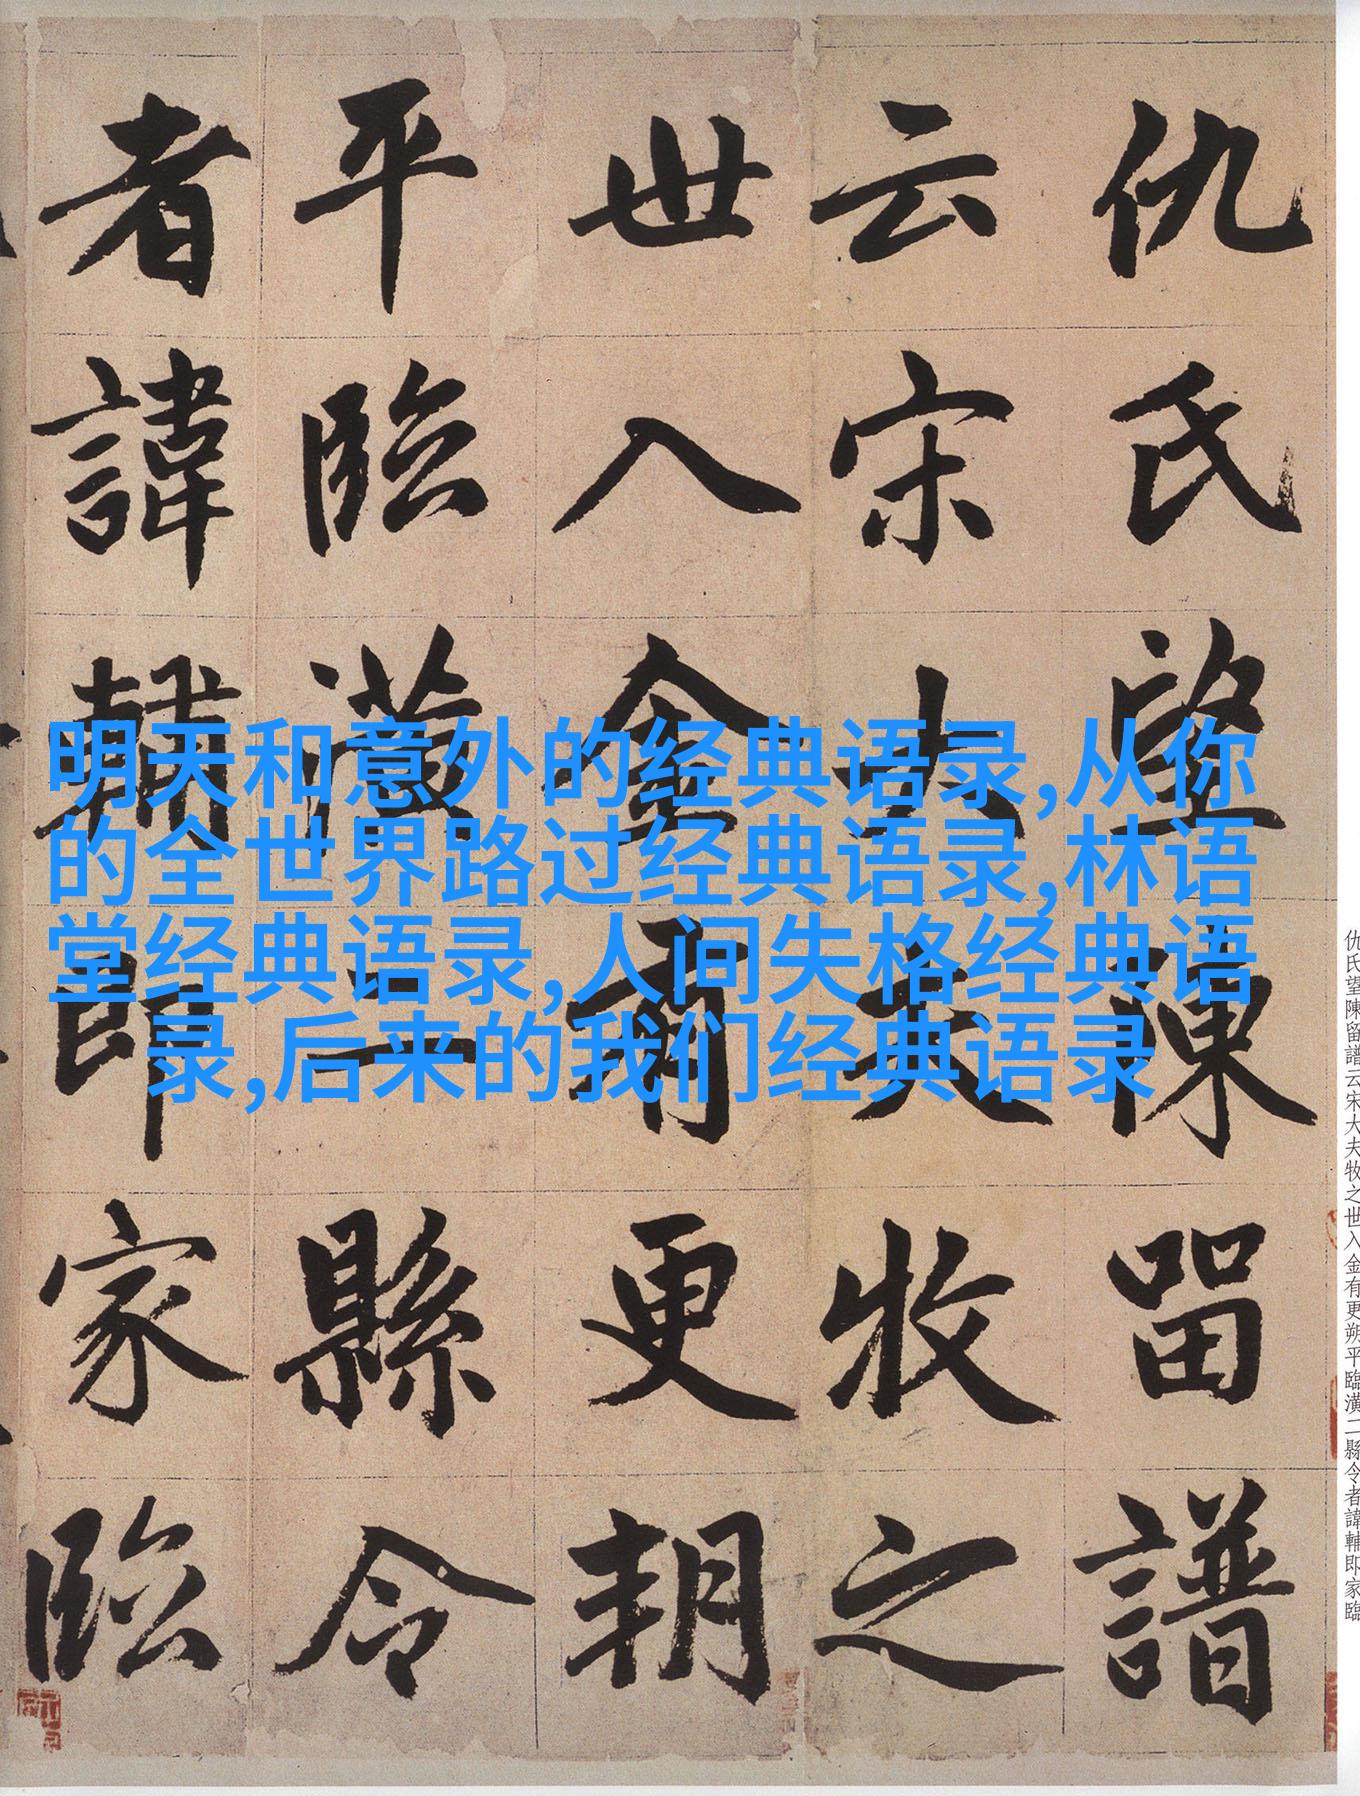 仇氏望陳留譜
云宋大夫牧之
世入金有更朔
平臨潢二縣令
者諱輔即家臨
明天和意外的经典语录,从你
的全世界路过经典语录,林语
堂经典语录,人间失格经典语
录,后来的我们经典语录
仇氏望陳留譜云宋大夫牧之世入金有更朔平臨潢二縣令者諱輔即家臨